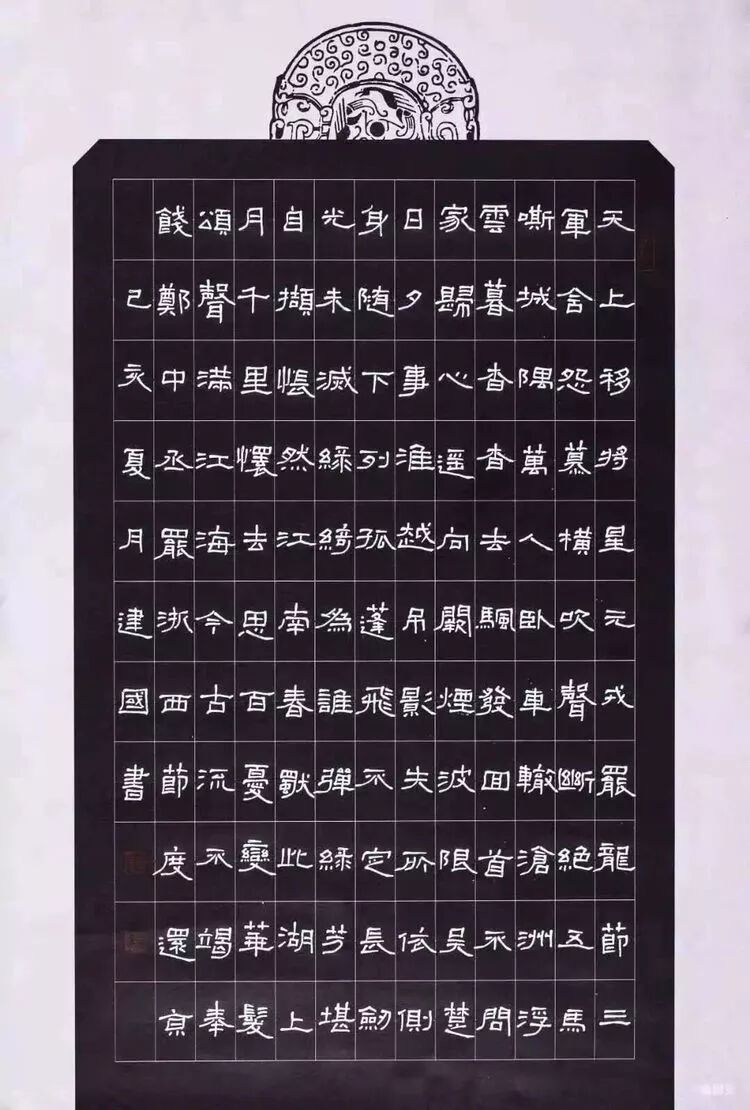 天上移将星元戎罷龍節三
軍舍怨慕橫吹聲斷絕五馬
嘶城隅萬人卧車轍滄洲浮
雲暮杳杳去颿發回首不問
家歸心遥向闕煙波限吳楚
日夕事淮越吊影失所依側
身随下列孤蓬飛不定長劍
光未滅綠綺為誰彈綠芳堪
自擷悵然江南春歇此湖上
月千里懷去思百憂變華髮
頌聲滿江海今古流不竭奉
餞鄭中丞罷浙西節度還京
己亥夏月建國書